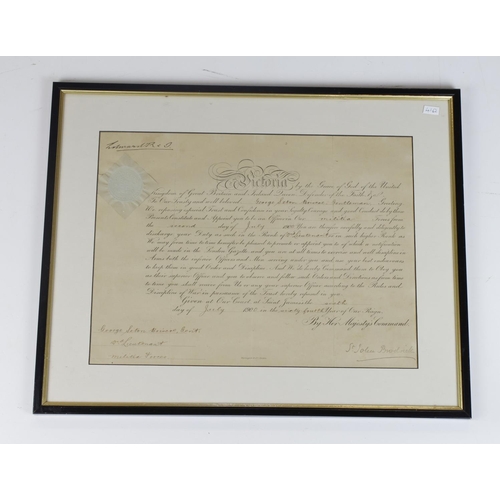 Victoria by the Grace of God of the United
Kingdom of Great Britain and Ireland Queen, Defender of the Faith, &c.
To Our Trusty and well beloved George Gentleman Greeting
We, reposing especial Trust and Confidence in your Loyalty, Courage, and good Conduct, do by these
Presents Constitute and Appoint you to be an Officer in Our Militia Forces from
the second day of July 1900 You are therefore carefully and diligently to
discharge your Duty as such in the Rank of 2nd Lieutenant or in such higher Rank as
We may from time to time hereafter be pleased to promote or appoint you to, of which a notification
will be made in the London Gazette, and you are at all times to exercise and well discipline in
Arms both the inferior Officers and Men serving under you and use your best endeavours
to keep them in good Order and Discipline. And We do hereby Command them to Obey you
as their superior Officer and you to observe and follow such Orders and Directions as from time
to time you shall receive from Us or any your superior Officer, according to the Rules and
Discipline of War, in pursuance of the Trust hereby reposed in you.
Given at Our Court, at Saint James's, the
day of July 1900 in the Year of Our Reign
By Her Majesty's Command.
George
2nd Lieutenant
Militia Forces